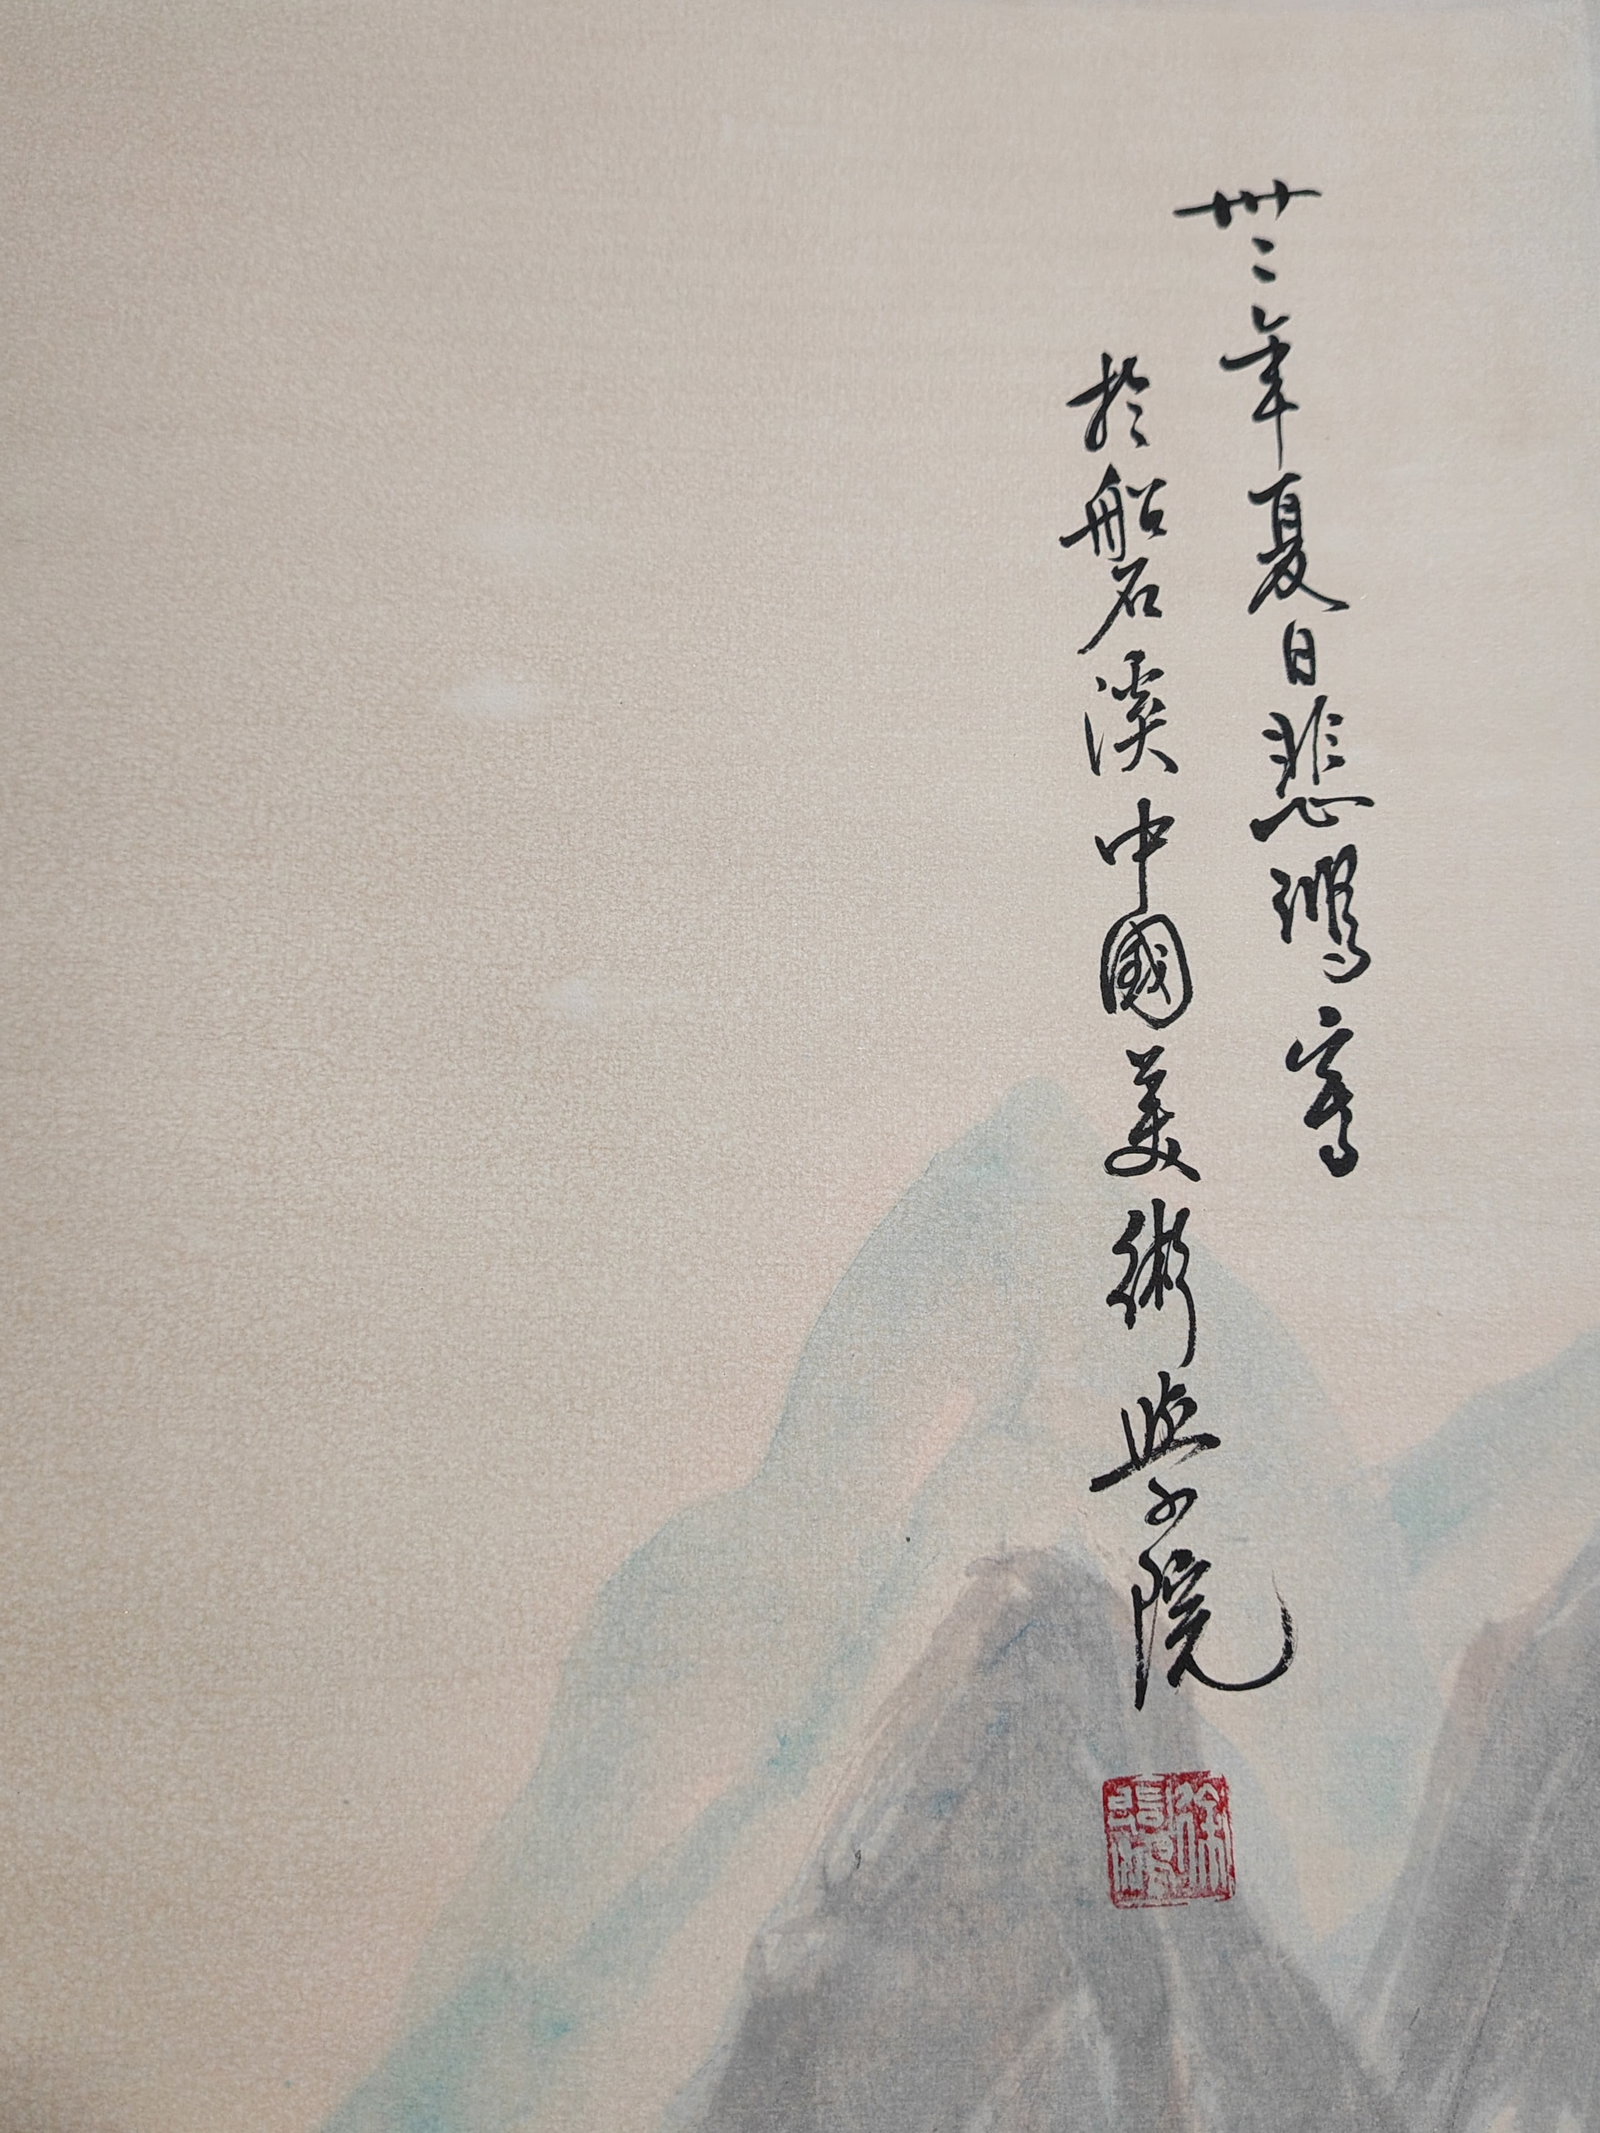 卅二年夏日悲鴻寫
於磐溪中國美術學院
徐悲鴻